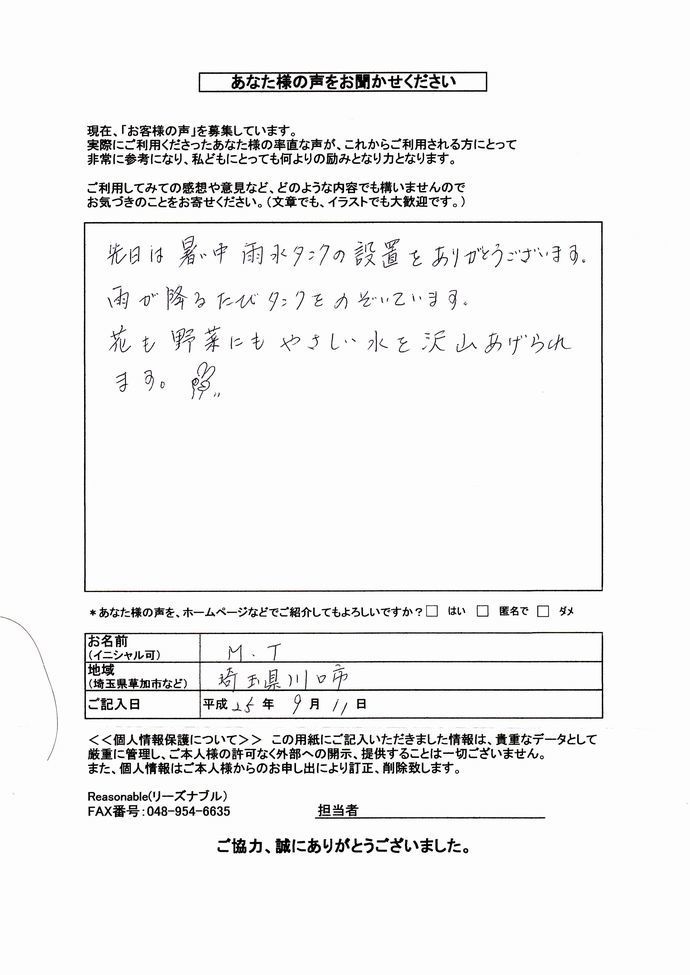 あなた様の声をお聞かせください
現在、「お客様の声」を募集しています。
実際にご利用くださったあなた様の率直な声が、これからご利用される方にとって
非常に参考になり、私どもにとっても何よりの励みとなり力となります。
ご利用してみての感想や意見など、どのような内容でも構いませんので
お気づきのことをお寄せください。（文章でも、イラストでも大歓迎です。）
先日は暑い中 雨水タンクの設置をありがとうございます。
雨が降るたびタンクをのぞいています。
花も野菜にもやさしい水を沢山あげられ
ます。
＊あなた様の声を、ホームページなどでご紹介してもよろしいですか？□ はい □ 匿名で □ ダメ
お名前
（イニシャル可）
M.T
地域
（埼玉県草加市など）
埼玉県川口市
ご記入日
平成 25 年 9 月 11 日
＜＜個人情報保護について＞＞ この用紙にご記入いただきました情報は、貴重なデータとして
厳重に管理し、ご本人様の許可なく外部への開示、提供することは一切ございません。
また、個人情報はご本人様からのお申し出により訂正、削除致します。
Reasonable(リーズナブル)
FAX番号：048-954-6635
担当者
ご協力、誠にありがとうございました。